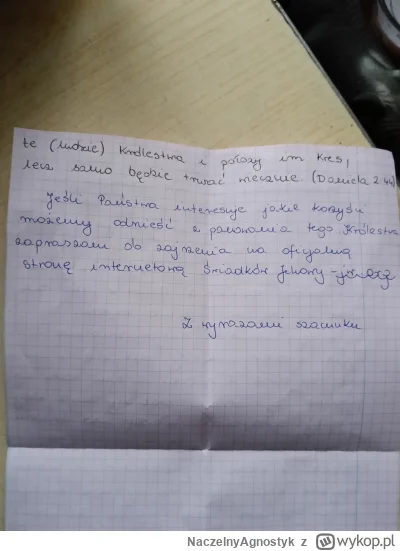 te (ludzkie) Królestwa i położy im kres,
lecz samo będzie trwać wiecznie. (Daniela 2:44)
Jeśli Państwa interesuje jakie korzyści
możemy odnieść z panowania tego Królestwa
zapraszam do zajrzenia na oficjalną
stronę internetową Świadków Jehowy -
Z wyrazami szacunku
NaczelnyAgnostyk z wykop.pl